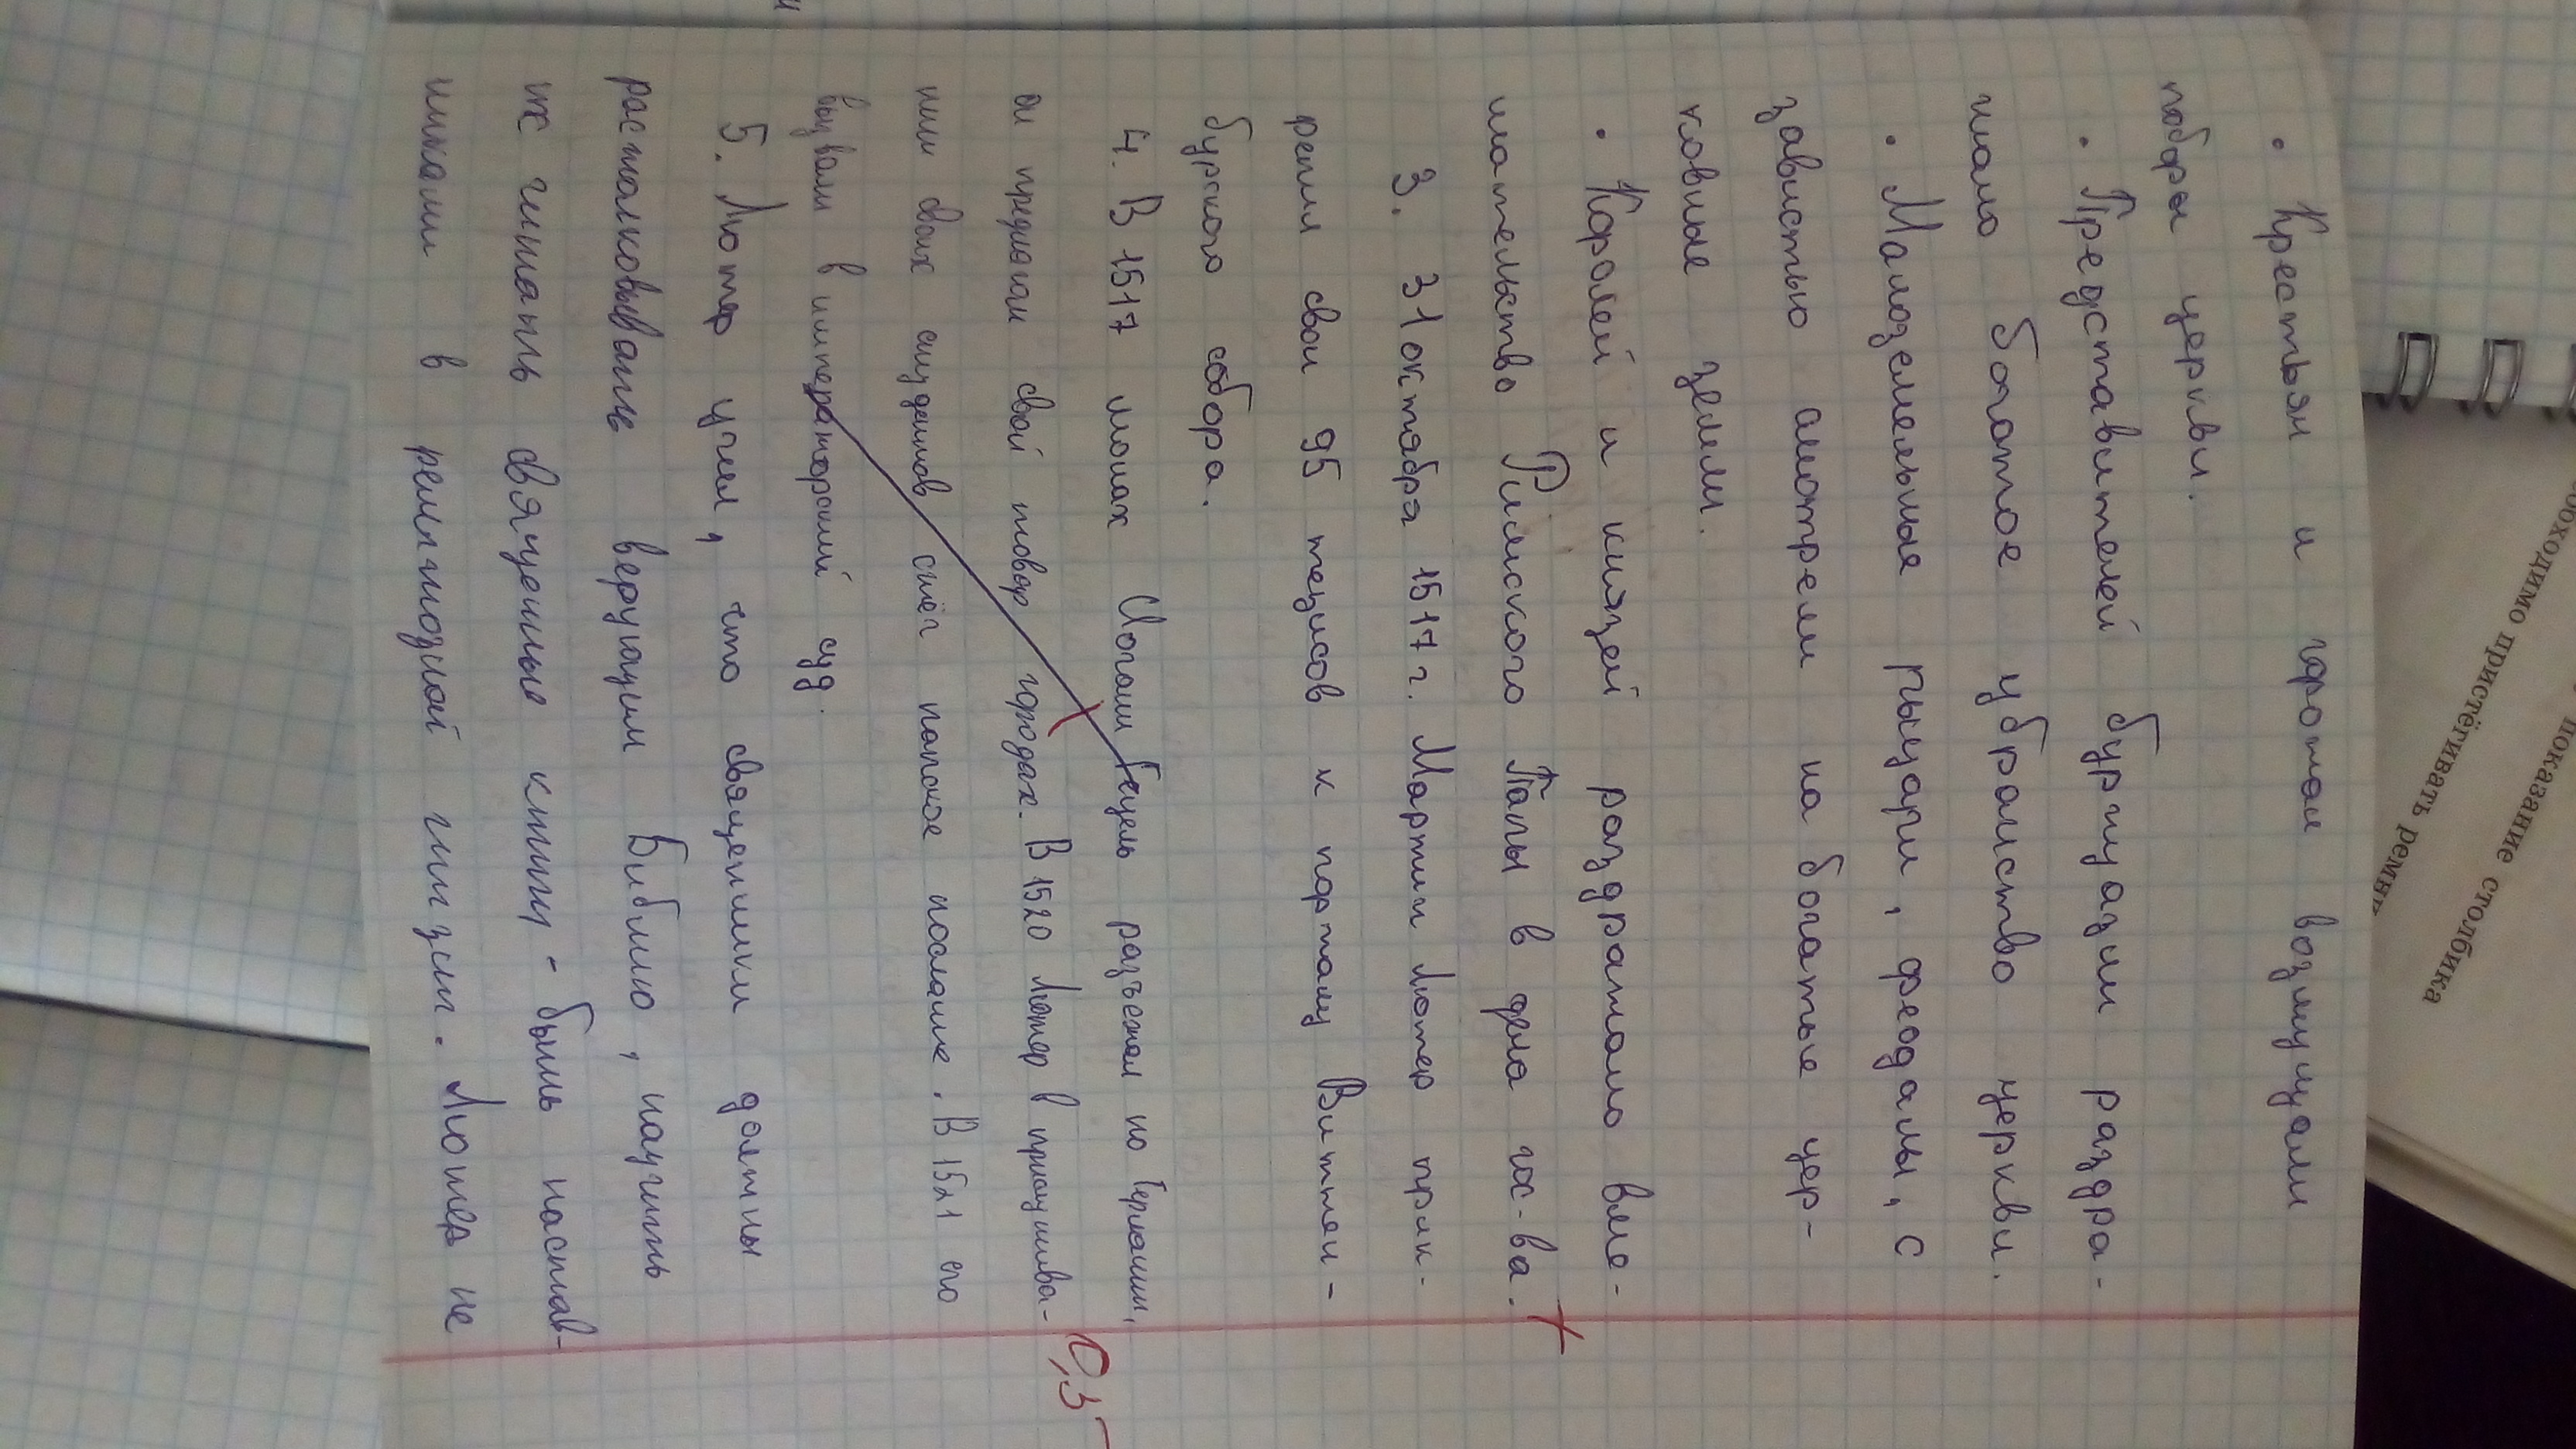 • Крестьян и горожан возмущали
поборы церкви.
• Представителей буржуазии раздра-
жало богатое убранство церкви.
• Малоземельные рыцари, феодалы, с
завистью смотрели на богатые цер-
ковные земли.
• Королей и князей раздражало вме-
шательство Римского Папы в дела гос-ва.
3. 31 октября 1517 г. Мартин Лютер прик-
репил свои 95 тезисов к порталу Виттен-
бургского собора.
4. В 1517 монах Иоганн Тецель разъезжал по Германии,
и предлагал свой товар городах. В 1520 Лютер в
своих студентов сжёг папское послание. В 1521 его
вызвали в императорский суд.
0,5
5. Лютер учил, что священники должны
растолковывать верующим Библию, научить
их читать священные книги - быть настав-
никами в религиозной жизни. Лютер не
обходимо пристёгивать ремни
показание столбика